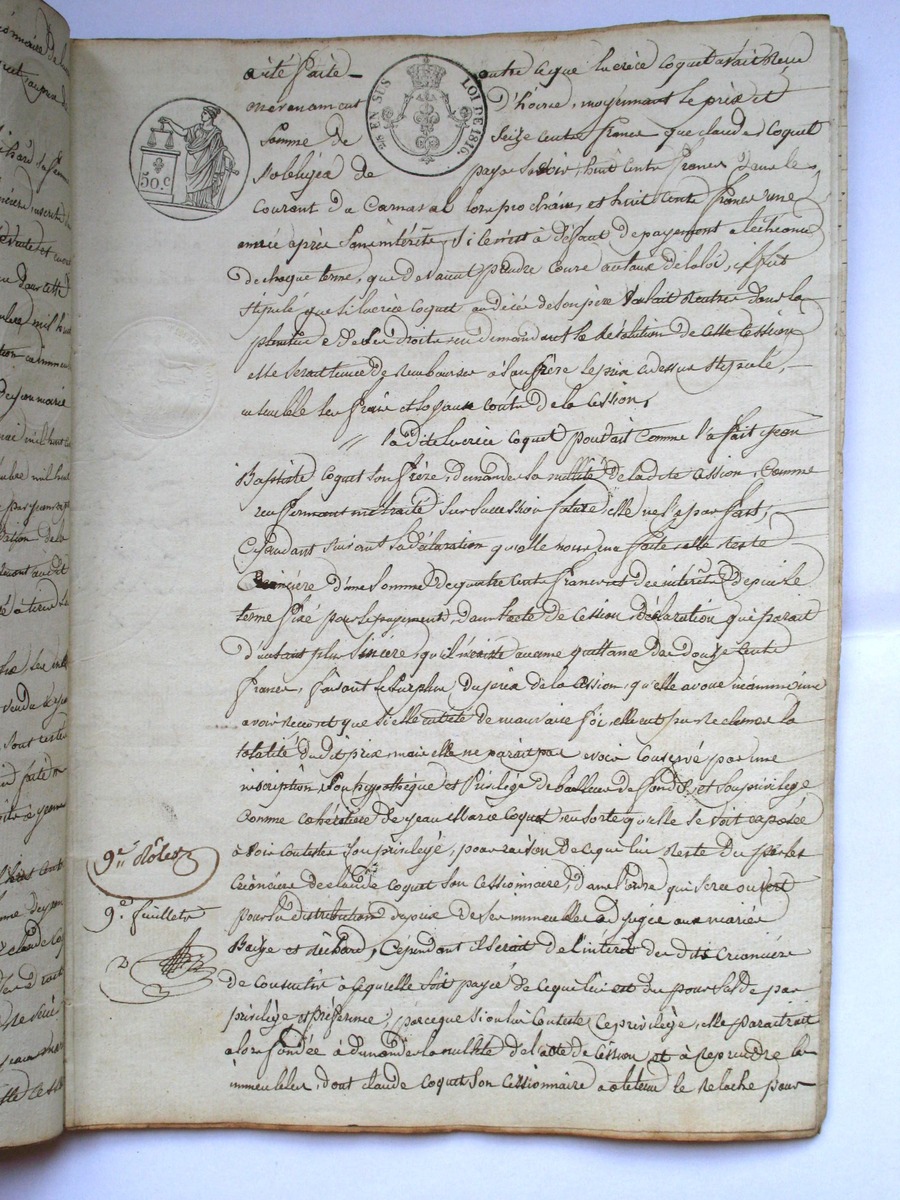 a été faite outre ce que lucrèce Coquet avait Reçu
en avancement D'hoirie, moyennant le prix et
Somme de Seize cents francs que claude Coquet
S'obligea de payer Savoir, huit cents francs dans le
Courant du Carnaval lors prochain, et huit cents francs une
année après Sans intérêts, Si ce n'est à défaut de payement a lechéance
de chaque terme, que devaient prendre cours au taux de la loi, il fut
Stipulé que Si lucrèce Coquet au décès de son père Voulait Rentrer dans la
plénitude de Ses droits en demandant la Résolution de cette Cession
elle serait tenue de Rembourser à Son frère le prix ci dessus Stipulé,
ensemble les frais et loyaux couts de la Cession,
// la dite lucrèce Coquet pouvait comme l'a fait jean
Baptiste Coquet Son frère, demander la nullité de la dite Cession, Comme
renfermant un traité Sur Succession future, elle ne l'a pas fait,
Cependant Suivant la déclaration qu'elle nous en a faite, elle reste
Créancière d'une Somme de quatre cents francs et des intérêts depuis le
terme fixé pour le payement, dans l'acte de Cession, Déclaration qui parait
d'autant plus Sincère, qu'il n'existe aucune quittance des douze cents
francs, faisant le Surplus du prix de la Cession, qu'elle avoue néanmoins
avoir reçu et que Si elle eut été de mauvaise foi, elle eut pu reclamer la
totalité du dit prix, mais elle ne parait pas avoir Conservé par une
inscription, Son hypothèque et Privilége de bailleur de fonds, et Son privilege
Comme cohéritière de jean Marie Coquet, en sorte qu'elle Se voit exposée
à voir contester Son privilege, pour raison de ce qui lui Reste du par les
Créanciers de claude Coquet Son Cessionnaire, dans l'ordre qui Sera ouvert
pour la distribution du prix de Ses immeubles adjugés aux mariés
Baize et Richard, Cependant il Serait de l'intérêt des dits Créanciers
de Consentir à ce qu'elle Soit payée de ce qui lui est du pour Solde par
privilége et préférence, parce que Si on lui Conteste Ce privilège, elle paraitrait
alors fondée à demander la nullité de l'acte de Cession, et à reprendre les
immeubles, dont claude Coquet Son Cessionnaire a obtenu le Relache pour
50.C
EN SUS
LOI DE 1816.
9.e Rôles
9.e feuillets